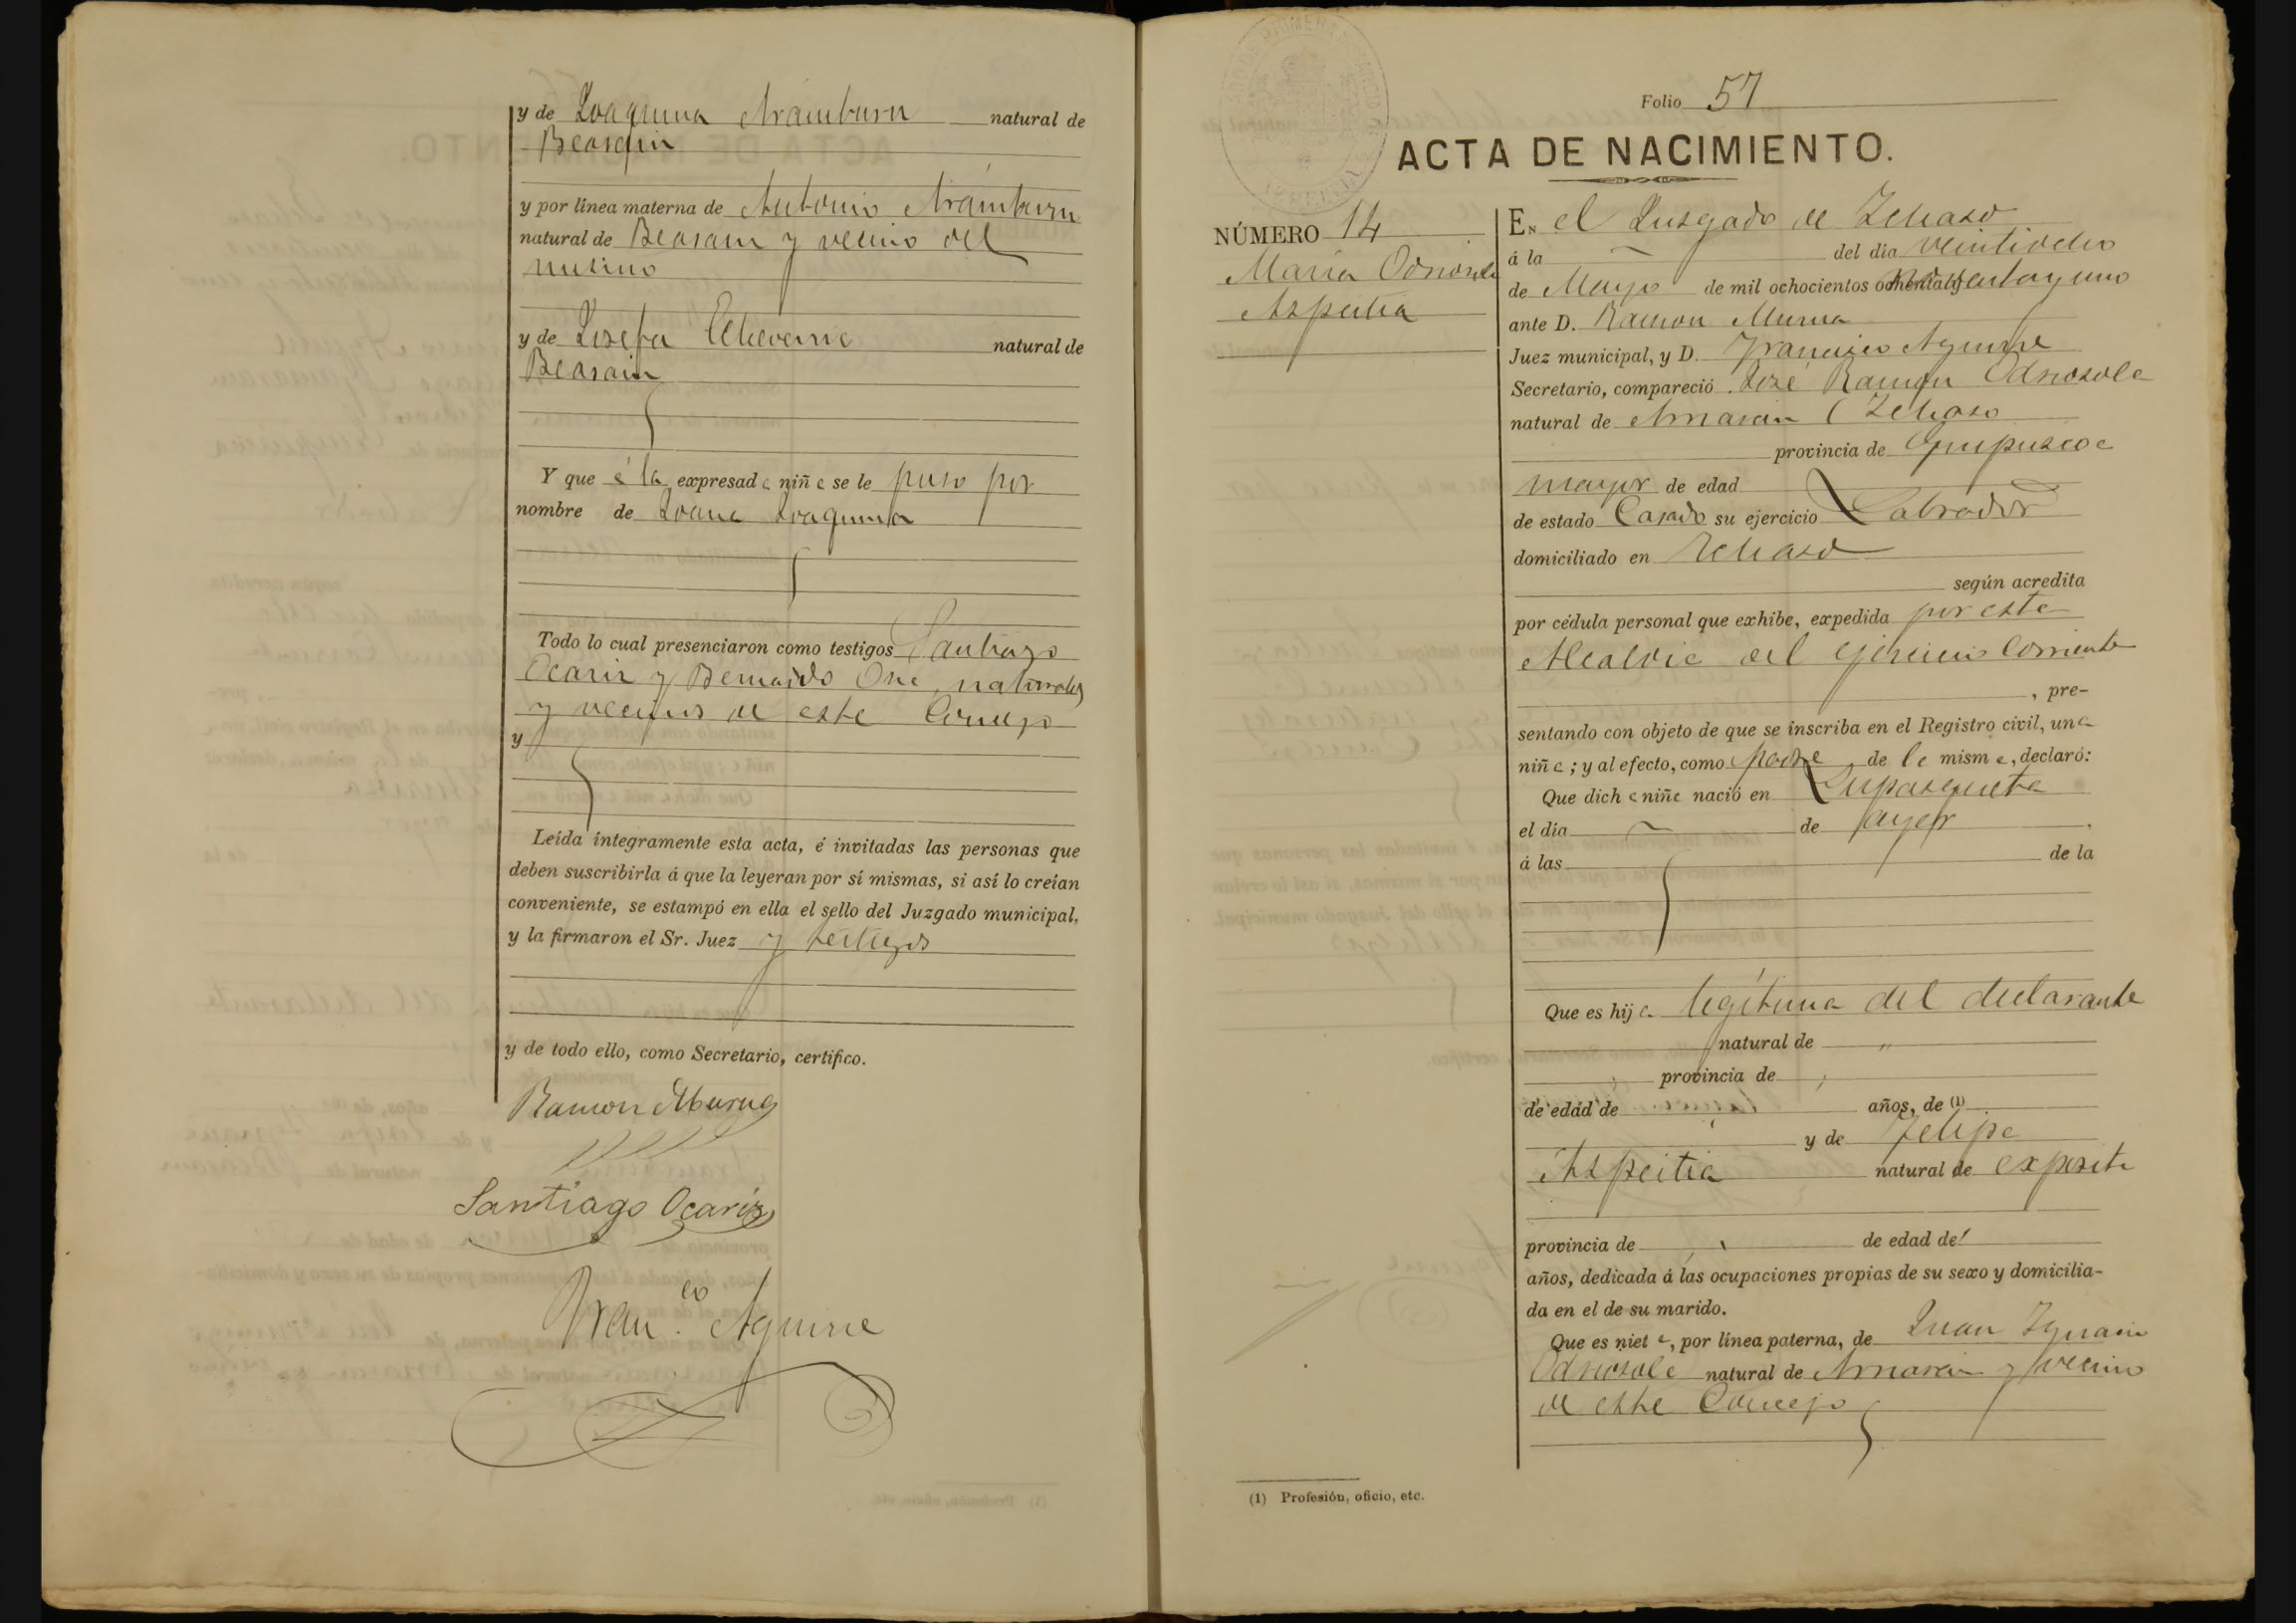 y de Joaquina Aramburu natural de
Beasain
y por línea materna de Antonio Aramburu
natural de Beasain y vecino del
mismo
y de Josefa Echeverria natural de
Beasain
Y que á la expresada niña se le puso por
nombre de Juana Joaquina
Todo lo cual presenciaron como testigos Santiago
Ocariz y Bernardo naturales
y vecinos de este Concejo
y
Leída íntegramente esta acta, é invitadas las personas que
deben suscribirla á que la leyeran por sí mismas, si así lo creían
conveniente, se estampó en ella el sello del Juzgado municipal,
y la firmaron el Sr. Juez y testigos
y de todo ello, como Secretario, certifico.
Ramon Murua
Santiago Ocariz
Fran.co Aguirre
Folio 57
ACTA DE NACIMIENTO.
NÚMERO 14
María Odriosola
Aspeitia
En el Jusgado de Ichaso
á la del día veintiocho
de Mayo de mil ochocientos noventa y uno
ante D. Ramon Murua
Juez municipal, y D. Francisco Aguirre
Secretario, compareció José Ramon Odriosola
natural de Arriaran (Ichaso
provincia de Guipuscoa
mayor de edad
de estado Casado su ejercicio Labrador
domiciliado en Ichaso
según acredita
por cédula personal que exhibe, expedida por esta
Alcaldia del ejercicio Corriente
, pre-
sentando con objeto de que se inscriba en el Registro civil, una
niña; y al efecto, como padre de la misma, declaró:
Que dicha niña nació en
el día de ayer
á las de la
Que es hija legítima del declarante
natural de "
provincia de
de edad de años, de (1)
y de Felipa
Aspeitia natural de exposita
provincia de de edad de
años, dedicada á las ocupaciones propias de su sexo y domicilia-
da en el de su marido.
Que es nieta, por línea paterna, de Juan Ygnacio
Odriosola natural de Arriaran y vecino
de este Concejo
(1) Profesión, oficio, etc.